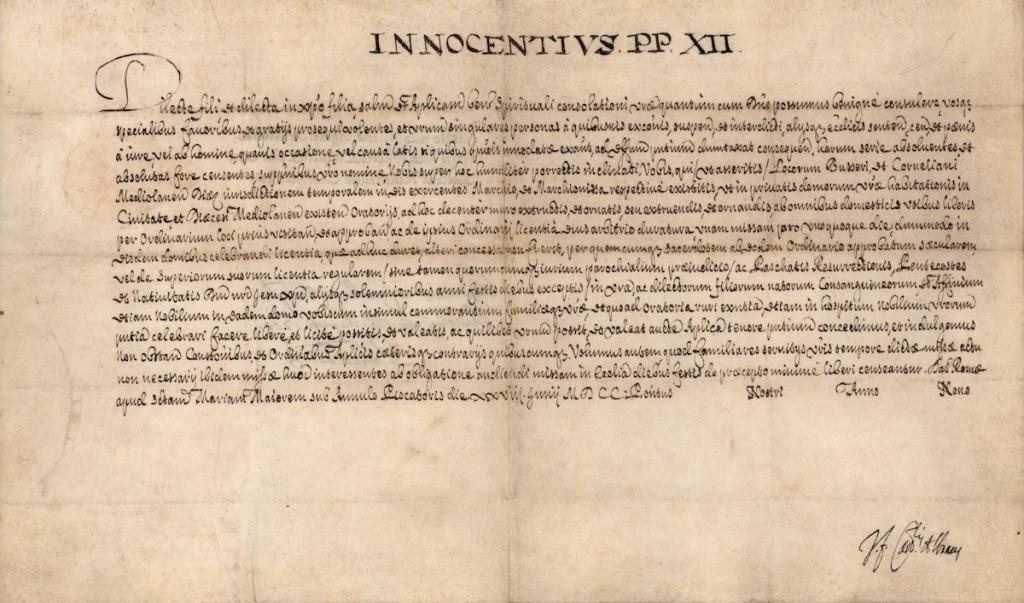 INNOCENTIVS. PP. XII.
Dilecte fili, et dilecta in xpo filia salut et Aplicam ben. Spirituali consolationi vrae quantum cum Dno possumus benigne consulere vosq
specialibus favoribus, et gratijs prosequi volentes, et vrum singulares personas à quibusvis excois, suspen, et interdicti, alijsq ecclicis senten, cen, et poenis
à iure, vel ab homine quavis occasione, vel causa latis si quibus quoislibet innodatae exnt, ad effum pntium duntaxat consequen, harum serie absolventes, et
absolutas fore censentes supplnibus vro nomine Nobis super hoc humiliter porrectis inclinati, Vobis, qui, ut asseritis, Locorum Busseri, et Corneliani
Mediolanen Dioec iurisdictionem temporalem in eis exercentes Marchio, et Marchionissa respective existitis, ut in privatis domorum vrae habitationis in
Civitate et Dioecesi Mediolanen existen Oratorijs, ad hoc decenter muro extructis, et ornatis, seu extruendis, et ornandis, ab omnibus domesticis usibus liberis
per Ordinarium loci prius visitan, et approban, ac de ipsius Ordinarij licentia eius arbitrio duratura unam missam pro unoquoque die, dummodo in
eisdem domibus celebrandi licentia, quae adhuc duret, alteri concessa non fuerit, per quemcumq sacerdotem ab eodem Ordinario approbatum saecularem,
vel de Superiorum suorum licentia regularem / sine tamen quorumcumq iurium parochialium praeiudicio / ac Paschatis Resurrectionis, Pentecostes
et Nativitatis Dni nri Jesu xpi, alijsq solemnioribus anni festis diebus exceptis / in vra, ac dilectorum filiorum natorum Consanguineorum et Affinium
etiam Nobilium in eadem domo vobiscum insimul commorantium familiaeq vrae, et quoad Oratoria ruri exntia, etiam in hospitum Nobilium vrorum
pntia celebrari facere libere, et licite possitis, et valeatis, ac quilibet vrum possit, et valeat authe Aplica tenore pntium concedimus, et indulgemus
non obstan Constonibus, et Ordinibus Aplicis caeterisq contrarijs quibuscumq. Volumus autem quod familiares servitijs vris tempore dictae missae actu
non necessarij ibidem missae huic interessentes ab obligatione audiendi missam in Ecclia diebus festis de praecepto minime liberi censeantur. Dat Romae
apud Sctam Mariam Maiorem sub Annulo Piscatoris die XXVIJ. Junij M D C C. Pontus Nostri Anno Nono